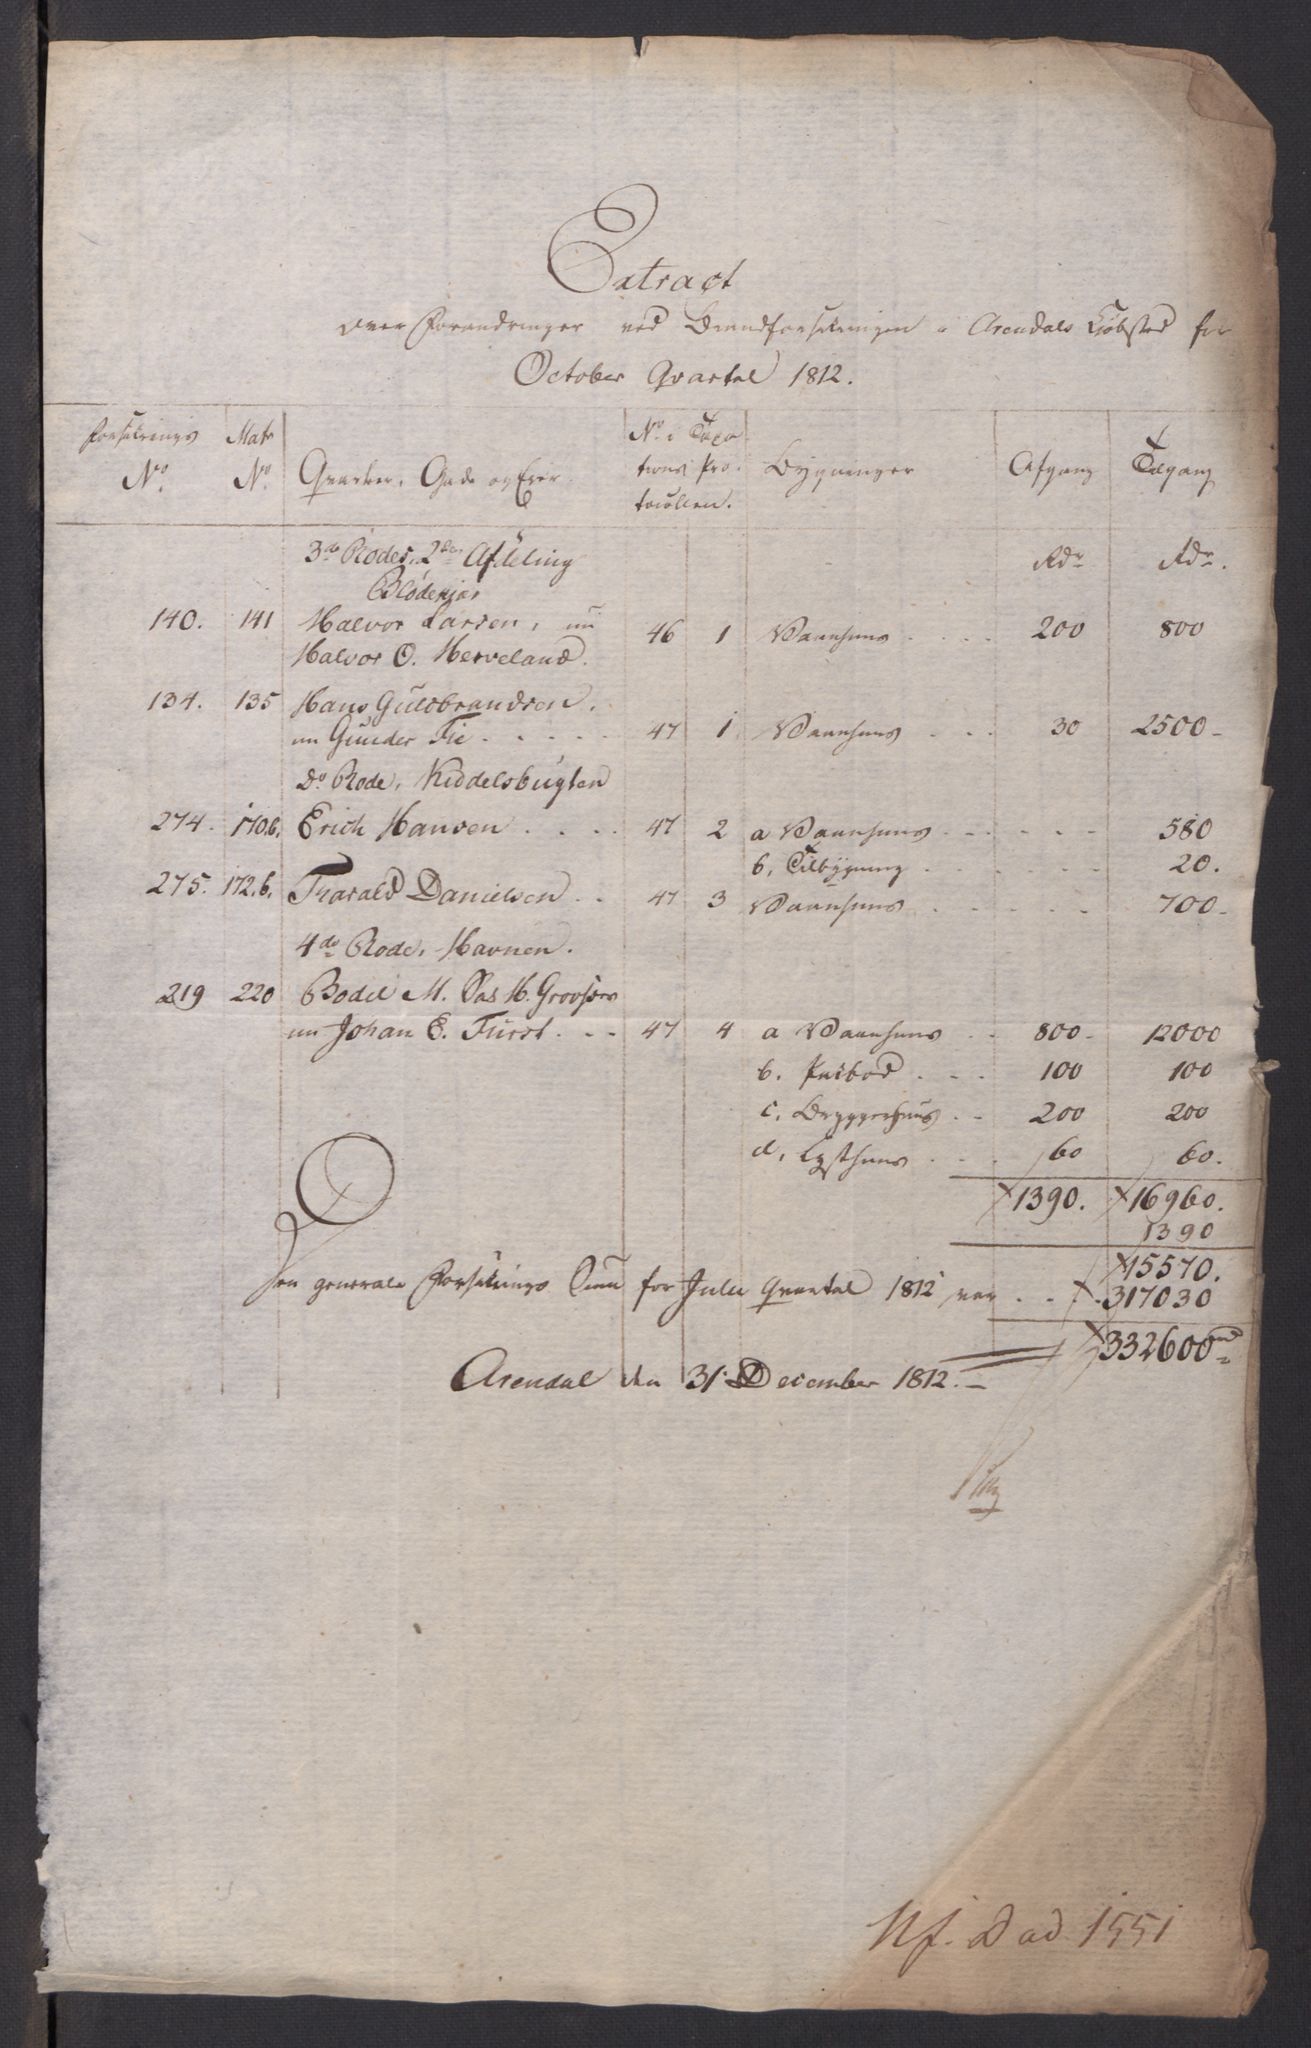 Extract
over Forandringer ved Brandforsikringen i Arendals Kiöbsted for
October Qvartal 1812.
Forsikrings Matr No. i Taxa
No. No. Qvarter, Gade og Eyer tions Pro Bygninger Afgang Tilgang
tocollen.
3de Rodes, 2den Afdeling Rdr. Rdr.
Blödekjær
140. 141 Halvor Larsen, nu 46 1 Vaanhuus . . . . 200 800
Halvor O. Herveland.
134. 135 Hans Guldbrandsen,
nu Gunder Fie . . . . . 47 1 Vaanhuus . . . 30 2500-
Do Rode, Kiddelsbugten
274. 170.b. Erich Hansen . . . . 47 2 a Vaanhuus . . . . . . 580
b, Tilbygning . . . . . . 20.
275. 172.b. Tharald Danielsen . . 47 3 Vaanhuus . . . . . 700-
4de Rode, Havnen.
219 220 Bodil M. Sal H.
nu Johan E. Fürst . . . 47 4 a Vaanhuus . . 800- 12000
b. . . . 100 100
c, Bryggerhuus . . 200 200
d, Lysthuus . . . 60 60.
1390. 16960.
1390
15570.
Den generale Forsikrings Sum for Julii Qvartal 1812 var . . . . 317030
332600
Arendal den 31. December 1812.-
Nf. D ad 1551